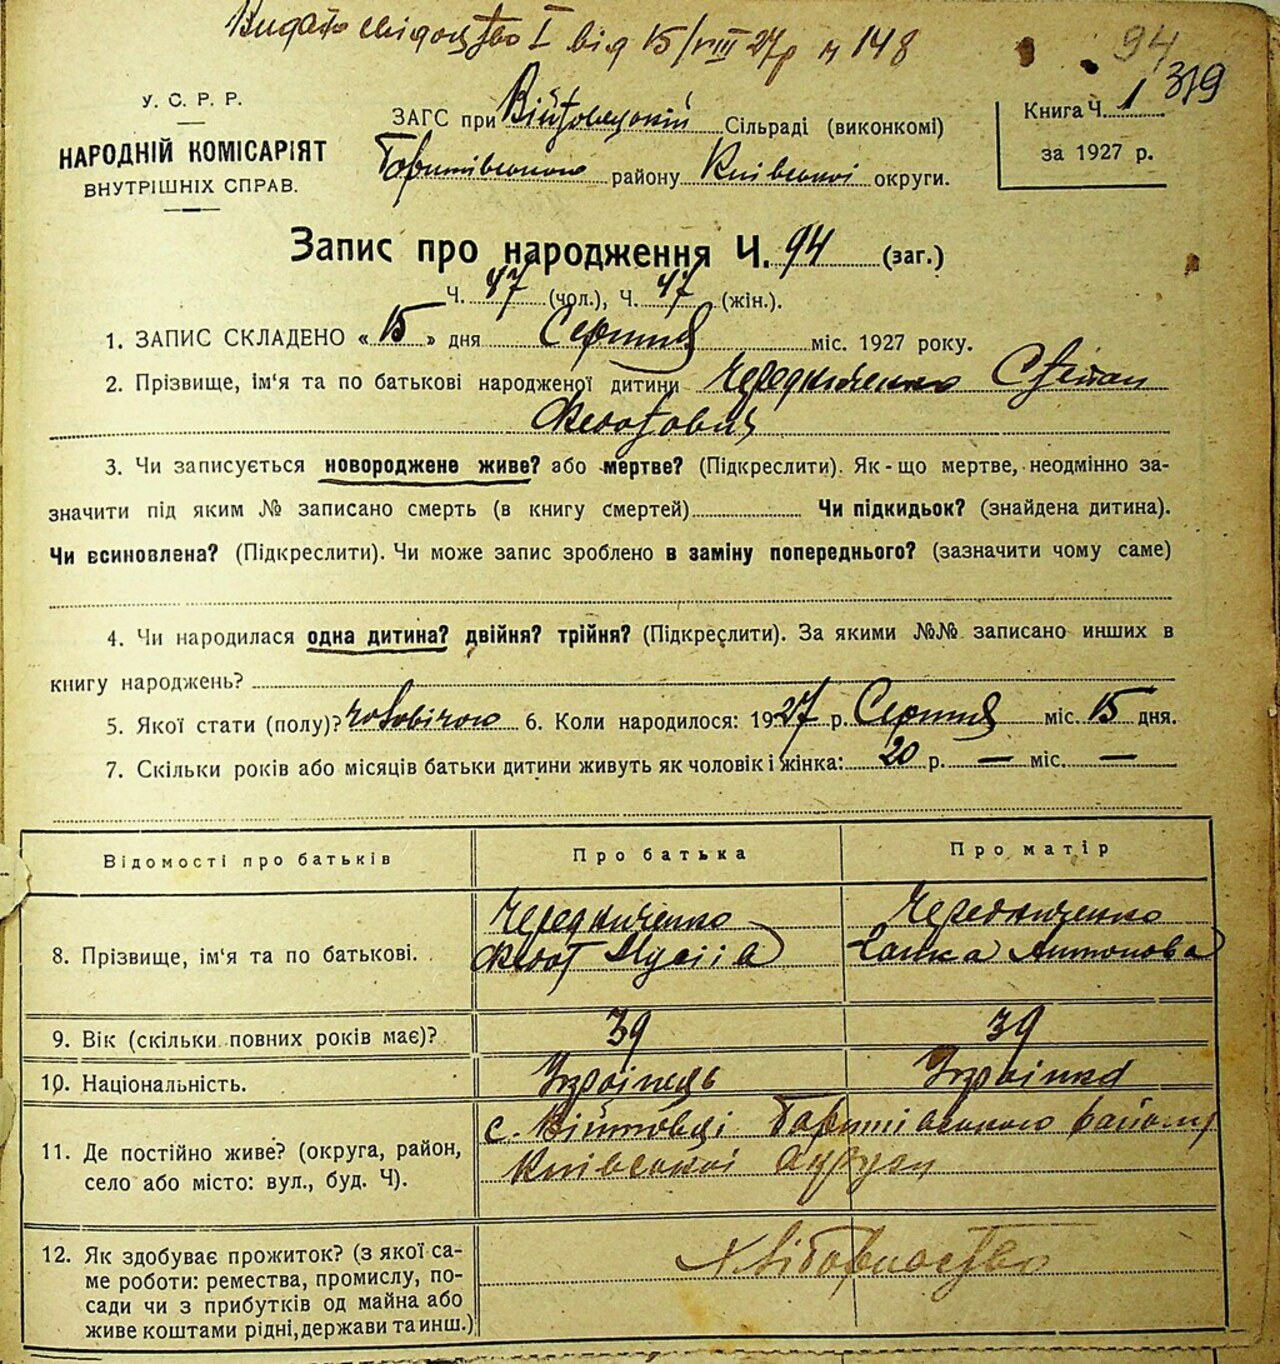 Видато свідоцтво I від 15/VIII 27р н 148
94
319
У. С. Р. Р.
НАРОДНІЙ КОМІСАРІЯТ
ВНУТРІШНІХ СПРАВ.
ЗАГС при Війтовецькій Сільраді (виконкомі)
Баришівського району Київської округи.
Книга Ч. 1
за 1927 р.
Запис про народження Ч. 94 (заг.)
Ч. 47 (чол.), Ч. 47 (жін.).
1. ЗАПИС СКЛАДЕНО « 15 » дня Серпня міс. 1927 року.
2. Прізвище, ім‘я та по батькові народженої дитини Чередниченко Степан
Федотович
3. Чи записується новороджене живе? або мертве? (Підкреслити). Як-що мертве, неодмінно за-
значити під яким № записано смерть (в книгу смертей) Чи підкидьок? (знайдена дитина).
Чи всиновлена? (Підкреслити). Чи може запис зроблено в заміну попереднього? (зазначити чому саме)
4. Чи народилася одна дитина? двійня? трійня? (Підкреслити). За якими №№ записано инших в
книгу народжень?
5. Якої стати (полу)? чоловічої 6. Коли народилося: 1927 р. Серпня міс. 15 дня.
7. Скільки років або місяців батьки дитини живуть як чоловік і жінка: 20 р. — міс. —
Відомості про батьків
Про батька
Про матір
8. Прізвище, ім‘я та по батькові.
Чередниченко
Федот Мусіїв
Чередниченко
Ганка Антонова
9. Вік (скільки повних років має)?
39
39
10. Національність.
Українець
Українка
11. Де постійно живе? (округа, район,
село або місто: вул., буд. Ч).
с. Війтовці Баришівського району
Київської округи
12. Як здобуває прожиток? (з якої са-
ме роботи: ремества, промислу, по-
сади чи з прибутків од майна або
живе коштами рідні, держави та инш.)
Хліборобство